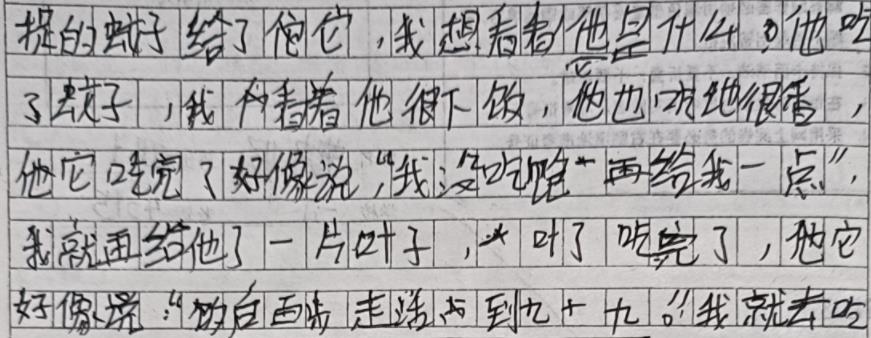 捉的蚊子给了他它，我想看看他是什么？他吃
了蚊子，我看着他很下饭，他也吃地很香，
他它吃完了好像说，“我没吃饱再给我一点”，
我就再给他了一片叶子，叶子吃完了，他它
好像说：“饭后百步走活到九十九。”我就去吃